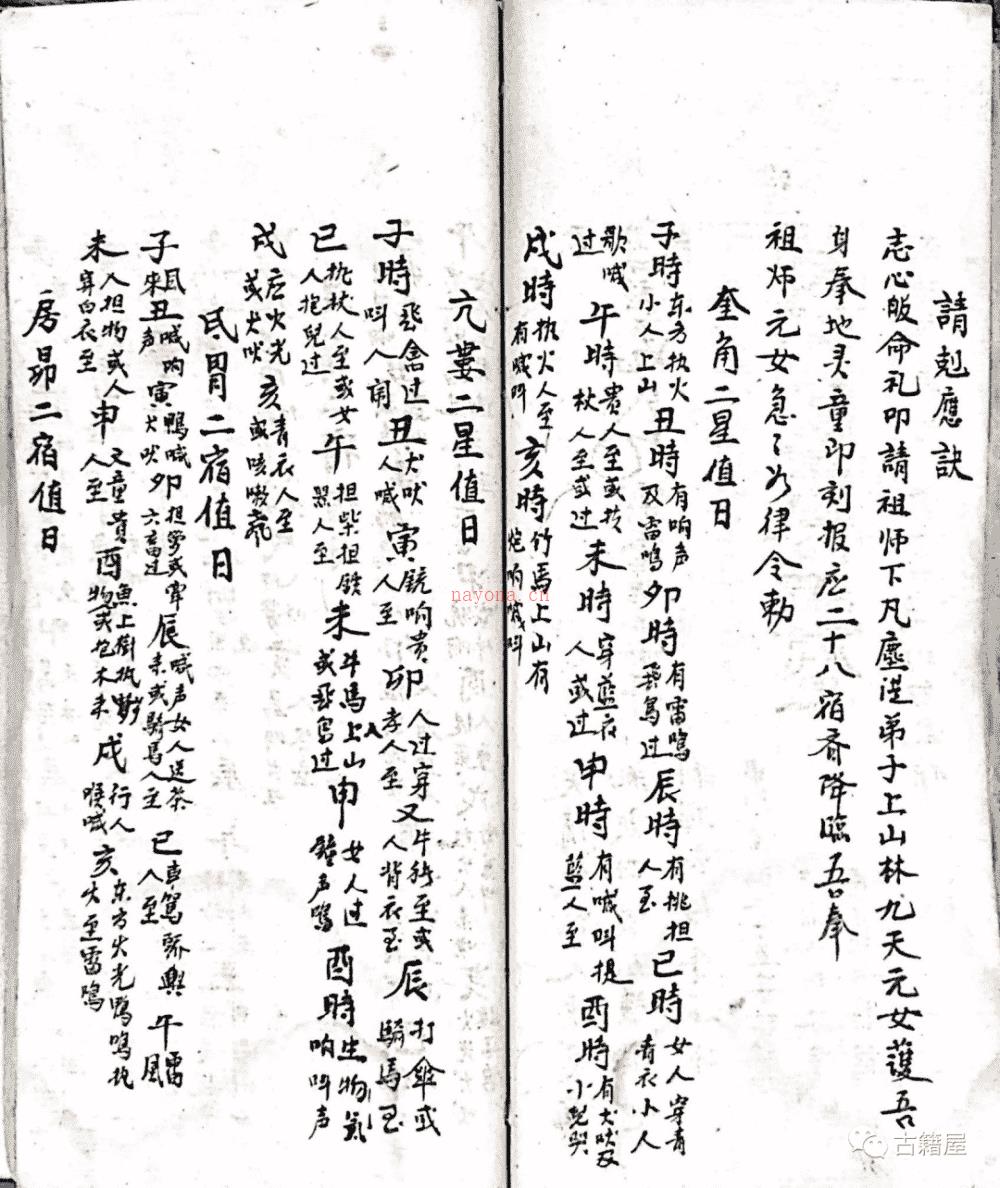 請剋應訣
志心皈命礼叩請祖师下凡塵 弟子上山林九天元女護吾
身奉地灵童即刻报应二十八宿齐降臨吾奉
祖师元女急々如律令勅
奎角二星值日
子時东方执火小人上山 丑時有响声及雷鸣 卯時有雷鸣飛鸟过 辰時有挑担人至 巳時女人穿青青衣小人
歌喊过 午時贵人至或持杖人至或过 未時穿蓝衣人或过 申時有喊叫提蓝人至 酉時有犬吠及小児哭
戌時执火人至有喊叫 亥時竹馬上山有炮响喊叫
亢婁二星值日
子時飛禽过叫人闹 丑犬吠人喊 寅铳响贵人至 卯人过穿孝人至 又牛 至或人背衣至 辰打傘或騎馬至
巳执杖人至或女人抱兒过 午担柴担鉄黑人至 未牛馬上山或飛鸟过 申女人过鐘声鸣 酉時生物氣响叫声
戌应火光或犬吠 亥青衣人至或咳嗽
氐胃二宿值日
子風来 丑喊响声 寅鴨喊犬吠 卯担 或 六畜过 辰喊声女人送茶来或騎馬人 巳車駕轿輿人至 午雷風
未人担物或人穿白衣至 申又童贵人至 酉魚上樹执 物或抱木来 戌行人喉喊 亥东方火光鴨鳴执火至雷鸣
房昴二宿值日
nayona.cn
古籍屋